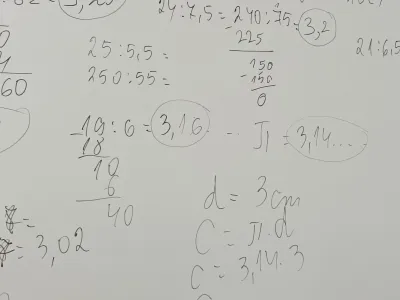 24:7,5=240:75=3,2
225
150
-150
0
25:5,5=
250:55=
21:6,5
60
19:6=3,16
18
10
6
40
П=3,14...
d=3cm
C=П.d
C=3,14.3
=3,02